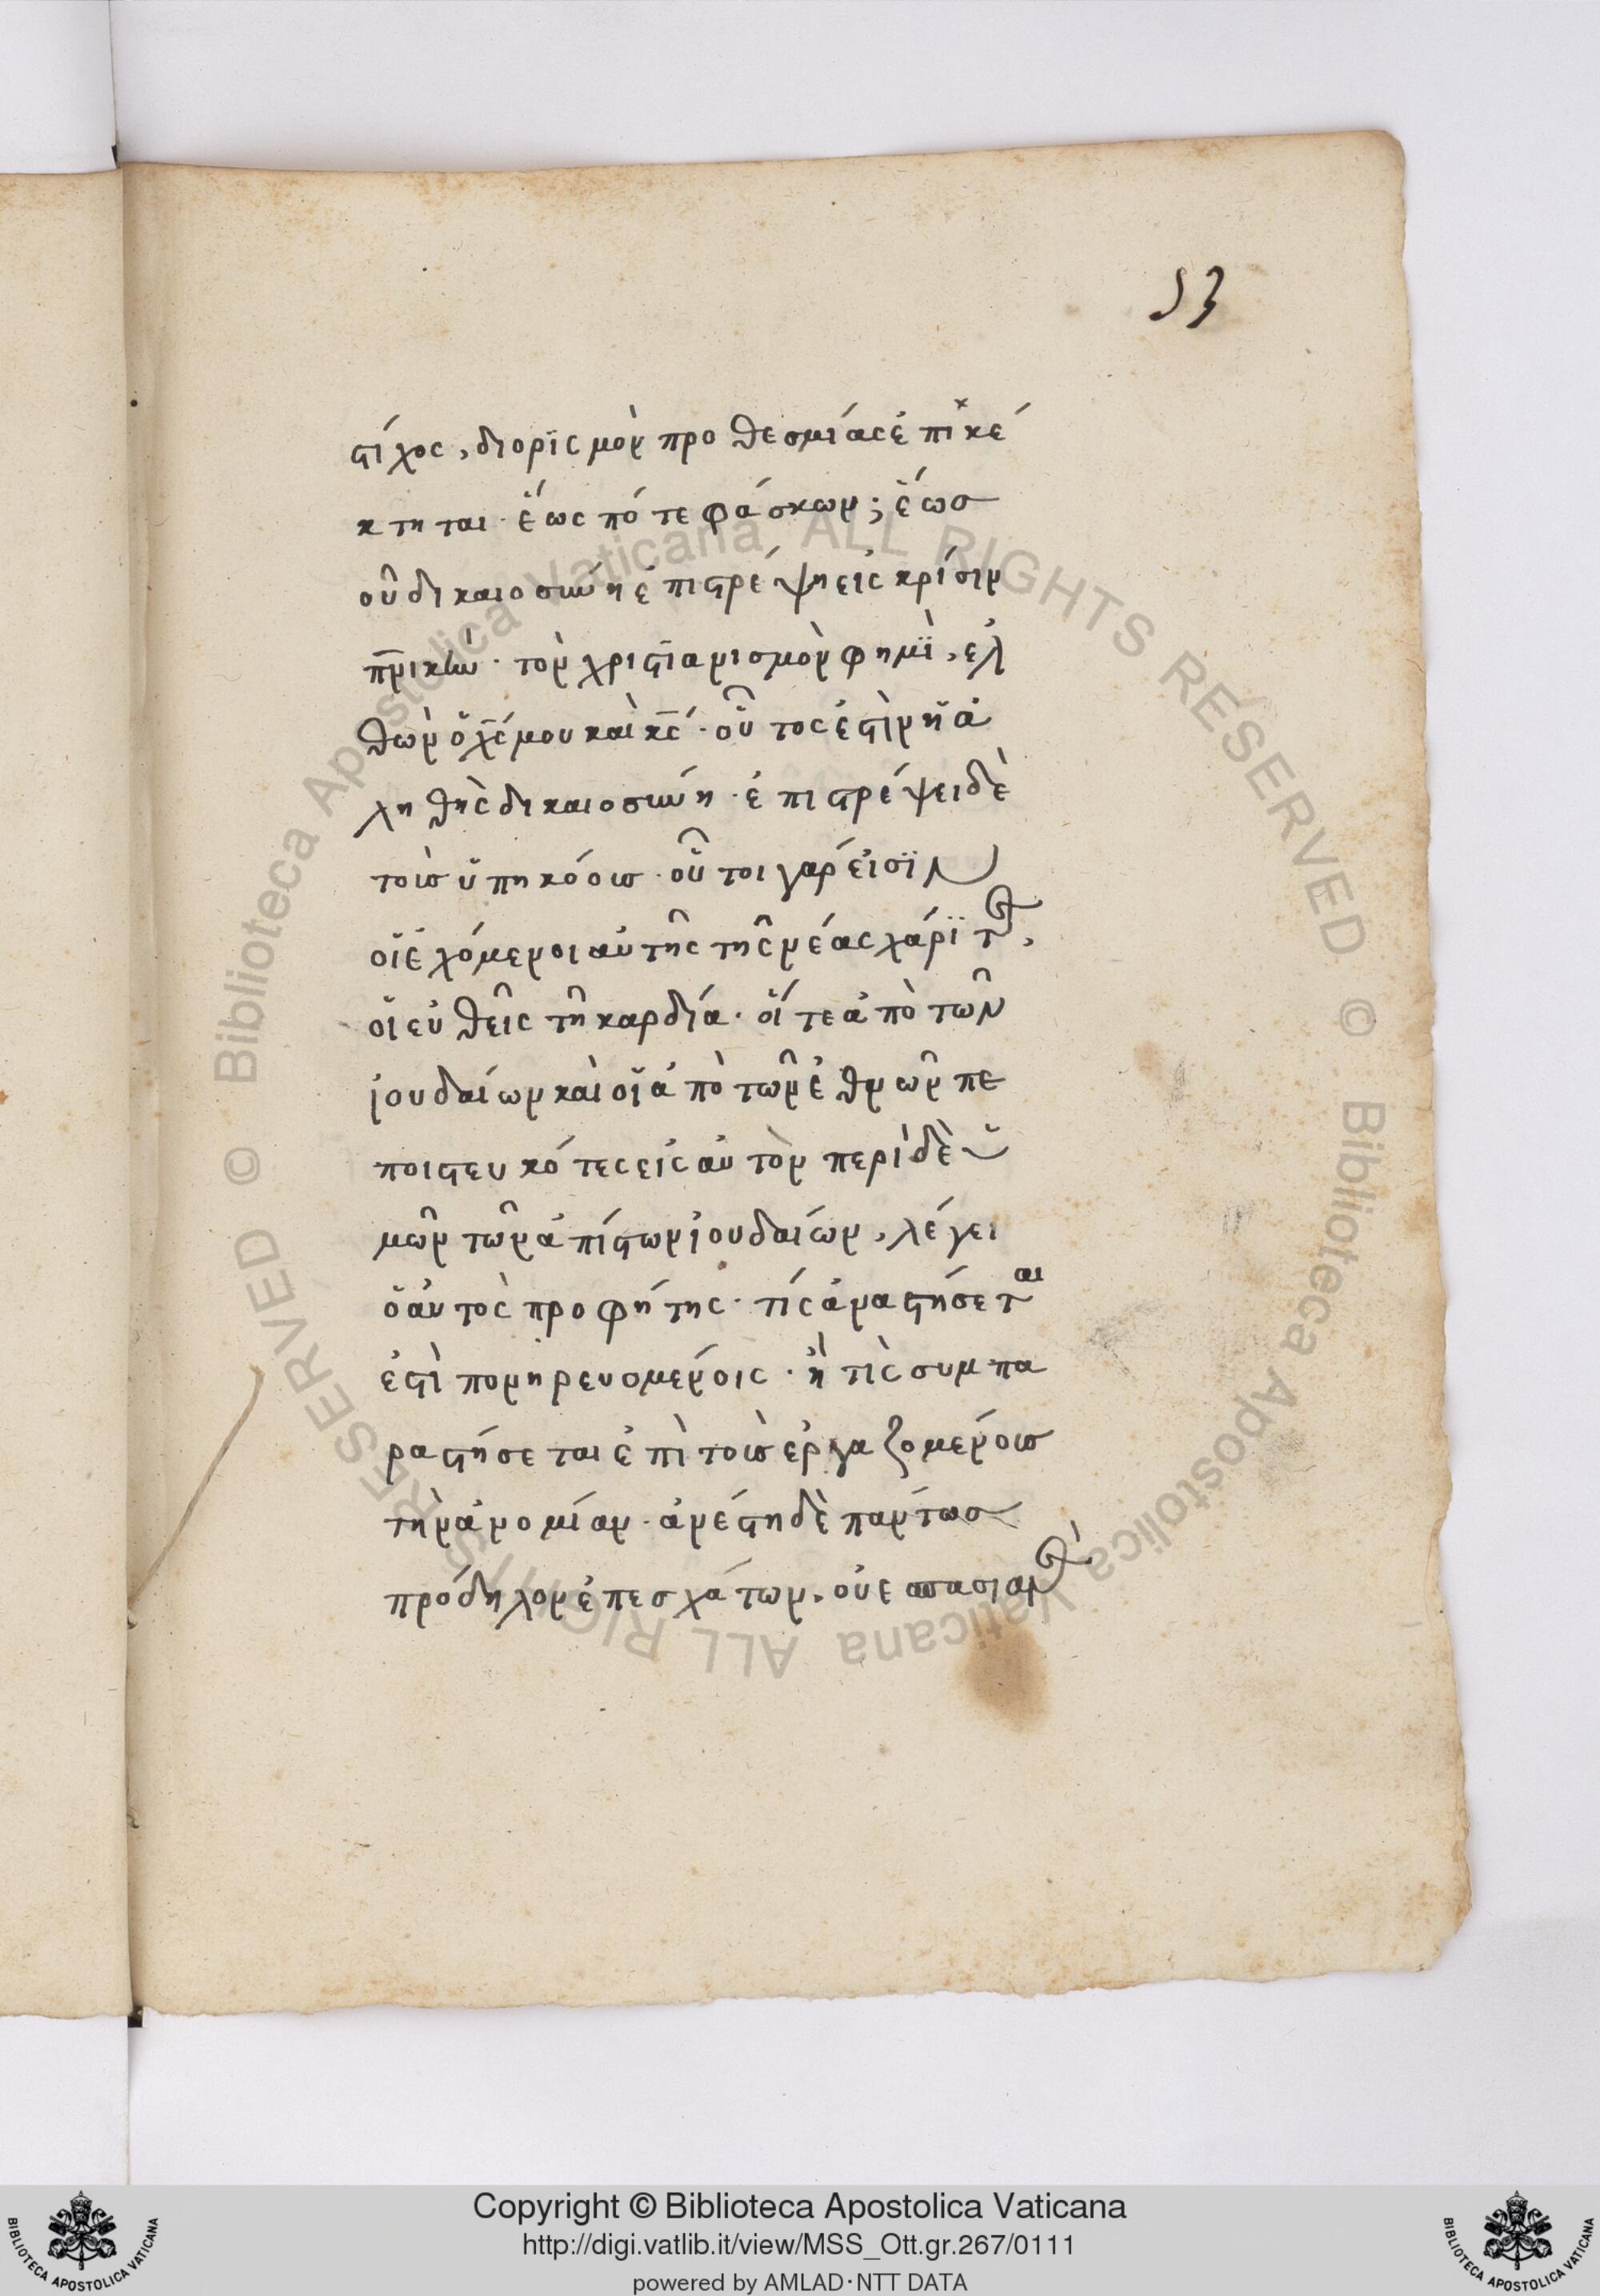 53
στίχος, διορϊσμὸν προθεσμίας ἐπικέ
κτηται· ἕως πότε φάσκων; ἕωσ
οὗ δικαιοσύνη ἐπιστρέψη εἰς κρίσιν
πνικήν· τὸν χριστιανισμὸν φημῒ, ἐλ
θὼν ὁ χς μου καὶ κς· οὗτος ἐστὶν ἡ ἀ
ληθὴς δικαιοσύνη· ἐπιστρέψει δὲ
τοῖσ ὑπηκόοισ· οὗτοι γάρ εἰσϊν
οἱ ἐχόμενοι αὐτῆς τῆς νέας χάρϊτος,
οἱ εὐθεῖς τῆ καρδία· οἵ τε ἀπὸ τῶν
ἰουδαίων καὶ οἱ ἀπὸ τῶν ἐθνῶν πε
ποιστευκότες εἰς αὐτὸν περὶ δὲ ὑ
μῶν τῶν ἀπίστων ἰουδαίων, λέγει
ὁ αὐτὸς προφήτης· τίς ἀναστήσεται
ἐστὶ πονηρευομένοις· ἢ τὶς συμπα
ραστήσεται ἐπὶ τοῖσ ἐργαζομένοισ
τὴν ἀνομίαν· ἀνέστη δὲ πάντωσ
πρόδηλον ἐπεσχάτων. οὐεσπασιανός
Copyright © Biblioteca Apostolica Vaticana
http://digi.vatlib.it/view/MSS_Ott.gr.267/0111
powered by AMLAD·NTT DATA
BIBLIOTECA APOSTOLICA VATICANA
BIBLIOTECA APOSTOLICA VATICANA
© Biblioteca Apostolica Vaticana ALL RIGHTS RESERVED © Biblioteca Apostolica Vaticana ALL RIGHTS RESERVED